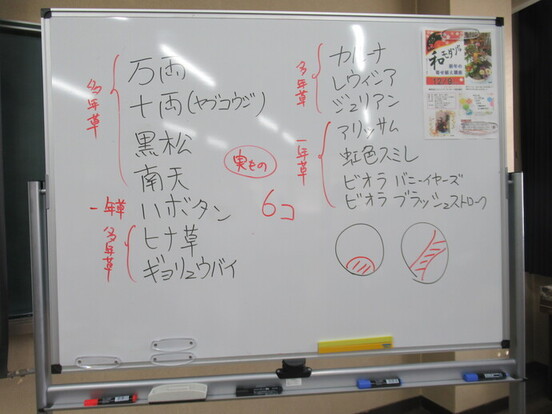 多年草
万両
十両(ヤブコウジ)
黒松
南天
一年草
ハボタン
多年草
ヒナ草
ギョリュウバイ
実もの
6コ
多年草
カルーナ
レウィシア
ジュリアン
一年草
アリッサム
虹色スミレ
ビオラ バニーイヤーズ
ビオラ ブラッシュストローク
和モダン